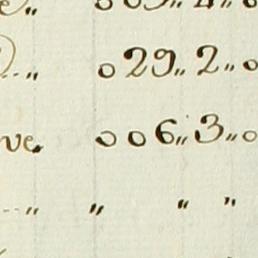 029„ 2„ 0
ve„ 006„ 3„ 0
„ „ „ „